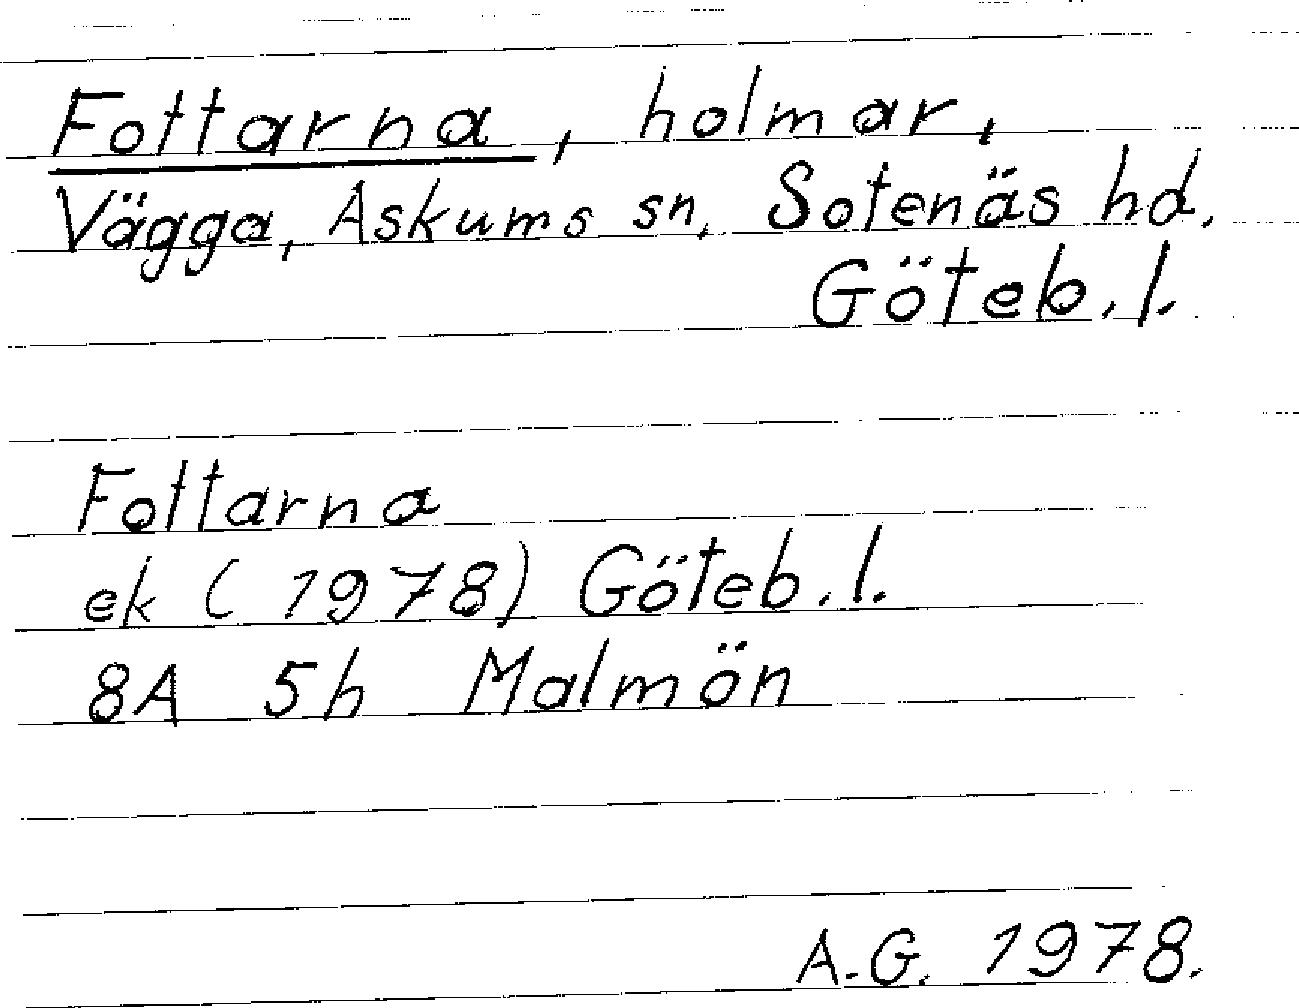 Fottarna, holmar,
Vägga, Askums sn, Sotenäs hd.
Göteb. l.
Fottarna
ek (1978) Göteb. l.
8A 5h Malmön
A.G. 1978.